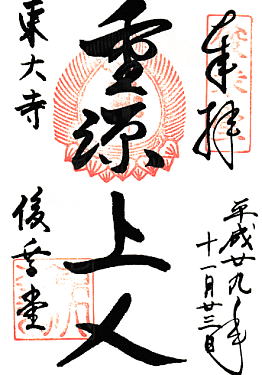 奉拝
平成廿九年
十一月廿三日
重源上人
東大寺
俊乗堂